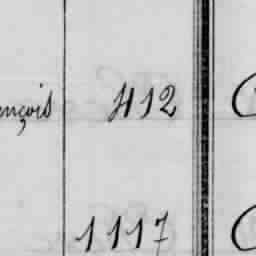 nçois 412
1117